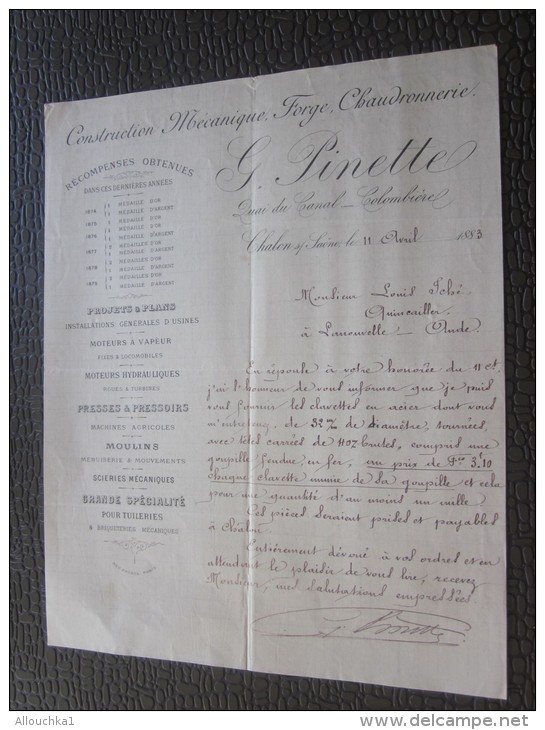 Construction Mécanique, Forge, Chaudronnerie.
G. Pinette
Quai du Canal _ Colombière
Chalon s/ Saône, le 11 Avril 1883
RÉCOMPENSES OBTENUES
DANS CES DERNIÈRES ANNÉES
1874 1 MÉDAILLE D'OR
MÉDAILLE D'ARGENT
1875 MÉDAILLE D'OR
MÉDAILLE D'ARGENT
1876 MÉDAILLE D'OR
MÉDAILLE D'ARGENT
1877 MÉDAILLES D'OR
MÉDAILLE D'ARGENT
1878 MÉDAILLE D'OR
MÉDAILLE D'ARGENT
1879 MÉDAILLE D'OR
MÉDAILLE D'ARGENT
PROJETS & PLANS
INSTALLATIONS GÉNÉRALES D'USINES
MOTEURS À VAPEUR
FIXES & LOCOMOBILES
MOTEURS HYDRAULIQUES
ROUES & TURBINES
PRESSES & PRESSOIRS
MACHINES AGRICOLES
MOULINS
MEUNERIE & MOUVEMENTS
SCIERIES MÉCANIQUES
GRANDE SPÉCIALITÉ
POUR TUILERIES
& BRIQUETERIES MÉCANIQUES
Monsieur Louis Iché
Quincailler
à Lanouvelle _ Aude
En réponse à votre honorée du 11 ct,
j'ai l'honneur de vous informer que je puis
vous fournir les clavettes en acier dont vous
m'entretenez, de 32 m/m de diamètre, tournées,
avec têtes carrées de brutes, compris une
goupille fendue, en fer, au prix de Frs 3,10
chaque clavette munie de sa goupille et cela
pour une quantité d'au moins un mille
Ces pièces seraient prises et payables
à Chalon.
Entièrement dévoué à vos ordres et en
attendant le plaisir de vous lire, recevez
Monsieur, mes salutations empressées
G. Pinette
Allouchka1
delcampe.net